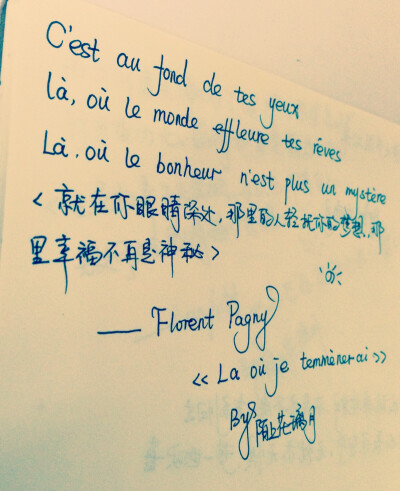 C'est au fond de tes yeux
là, où le monde effleure tes rêves
Là, où le bonheur n'est plus un mystère
<就在你眼睛深处,那里的人轻扰你的梦想,那
里幸福不再是神秘>
—— Florent Pagny
<<La où je temmènerai>>
By 陌花滴月